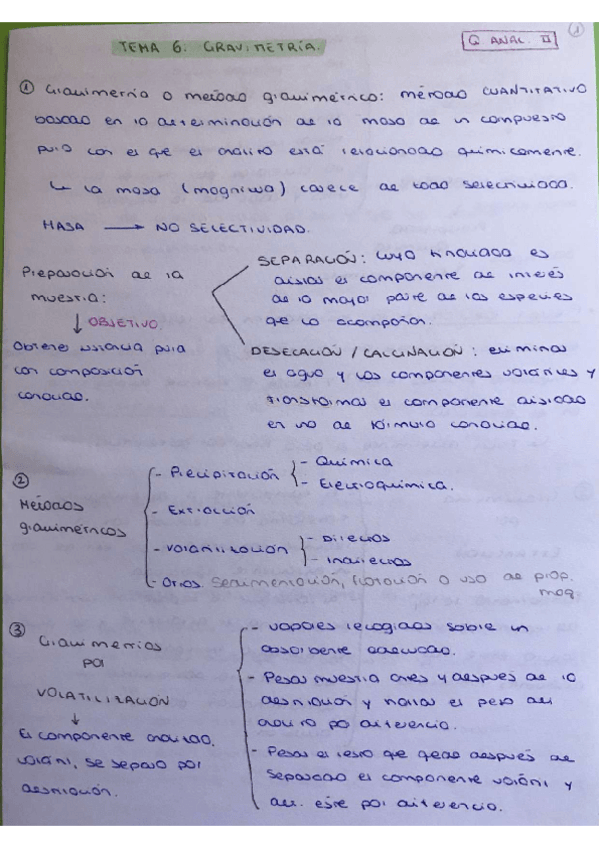 1
TEMA 6: GRAVIMETRÍA.
Q ANAL. II
① Gravimetría o método gravimétrico: método CUANTITATIVO
basado en la determinación de la masa de un compuesto
puro con el que el analito está relacionado químicamente.
↳ La masa (magnitud) carece de toda selectividad.
MASA → NO SELECTIVIDAD.
Preparación de la
muestra:
↓ OBJETIVO.
Obtener sustancia pura
con composición
conocida.
SEPARACIÓN: cuya finalidad es
aislar el componente de interés
de la mayor parte de las especies
que lo acompañan.
DESECACIÓN / CALCINACIÓN: eliminar
el agua y los componentes volátiles y
transformar el componente aislado
en uno de fórmula conocida.
②
Métodos
gravimétricos
- Precipitación
- Química
- Electroquímica.
- Extracción
- Volatilización
- Directos
- Indirectos
- Otros. Sedimentación, flotación o uso de prop.
mag
③ Gravimetrías
por
VOLATILIZACIÓN
↓
El componente analizado,
volátil, se separa por
destilación.
- Vapores recogidos sobre un
absorbente adecuado.
- Pesar muestra antes y después de la
destilación y hallar el peso del
analito por diferencia.
- Pesar el resto que queda después de
separado el componente volátil y
det. este por diferencia.